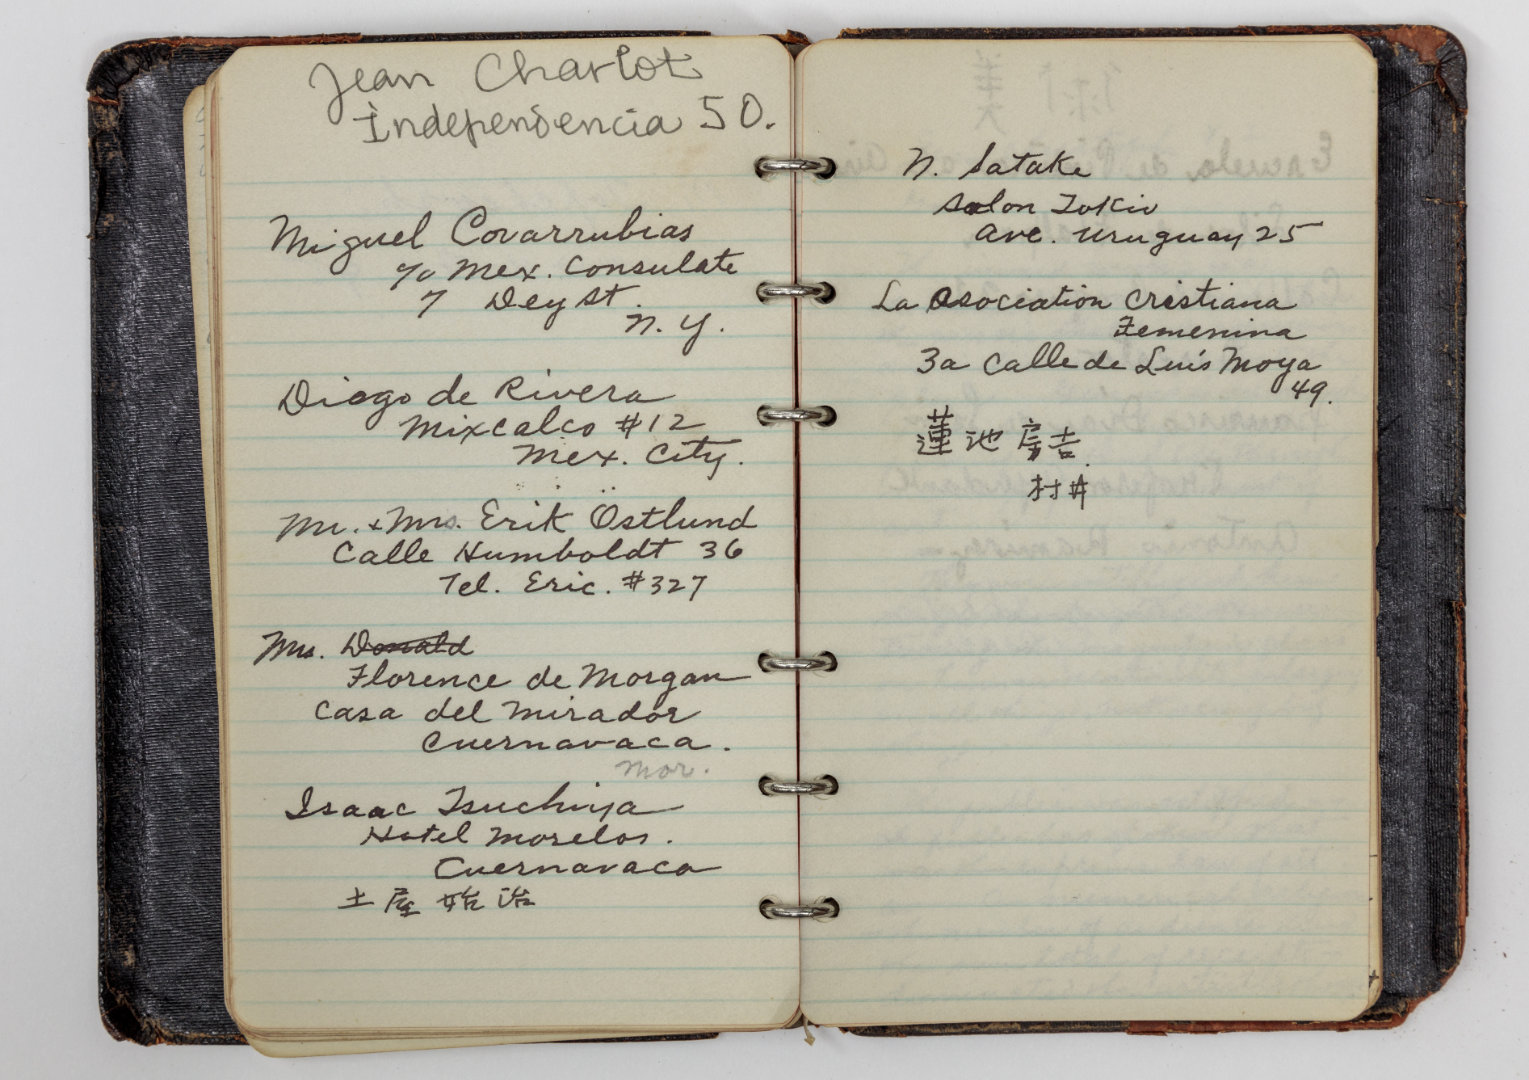 Jean Charlot
Independencia 50.
Miguel Covarrubias
c/o Mex. Consulate
7 Dey St.
N. Y.
Diego de Rivera
Mixcalco #12
Mex. City.
Mr. & Mrs. Erik Östlund
Calle Humboldt 36
Tel. Eric. #327
Mrs. Donald
Florence de Morgan
Casa del Mirador
Cuernavaca.
Mor.
Isaac Tsuchiya
Hotel Morelos.
Cuernavaca
土屋 始治
N. Satake
Salon Tokio
Ave. Uruguay 25
La Asociation Cristiana
Femenina
3a Calle de Luis Moya
49.
蓮池 房吉.
村井